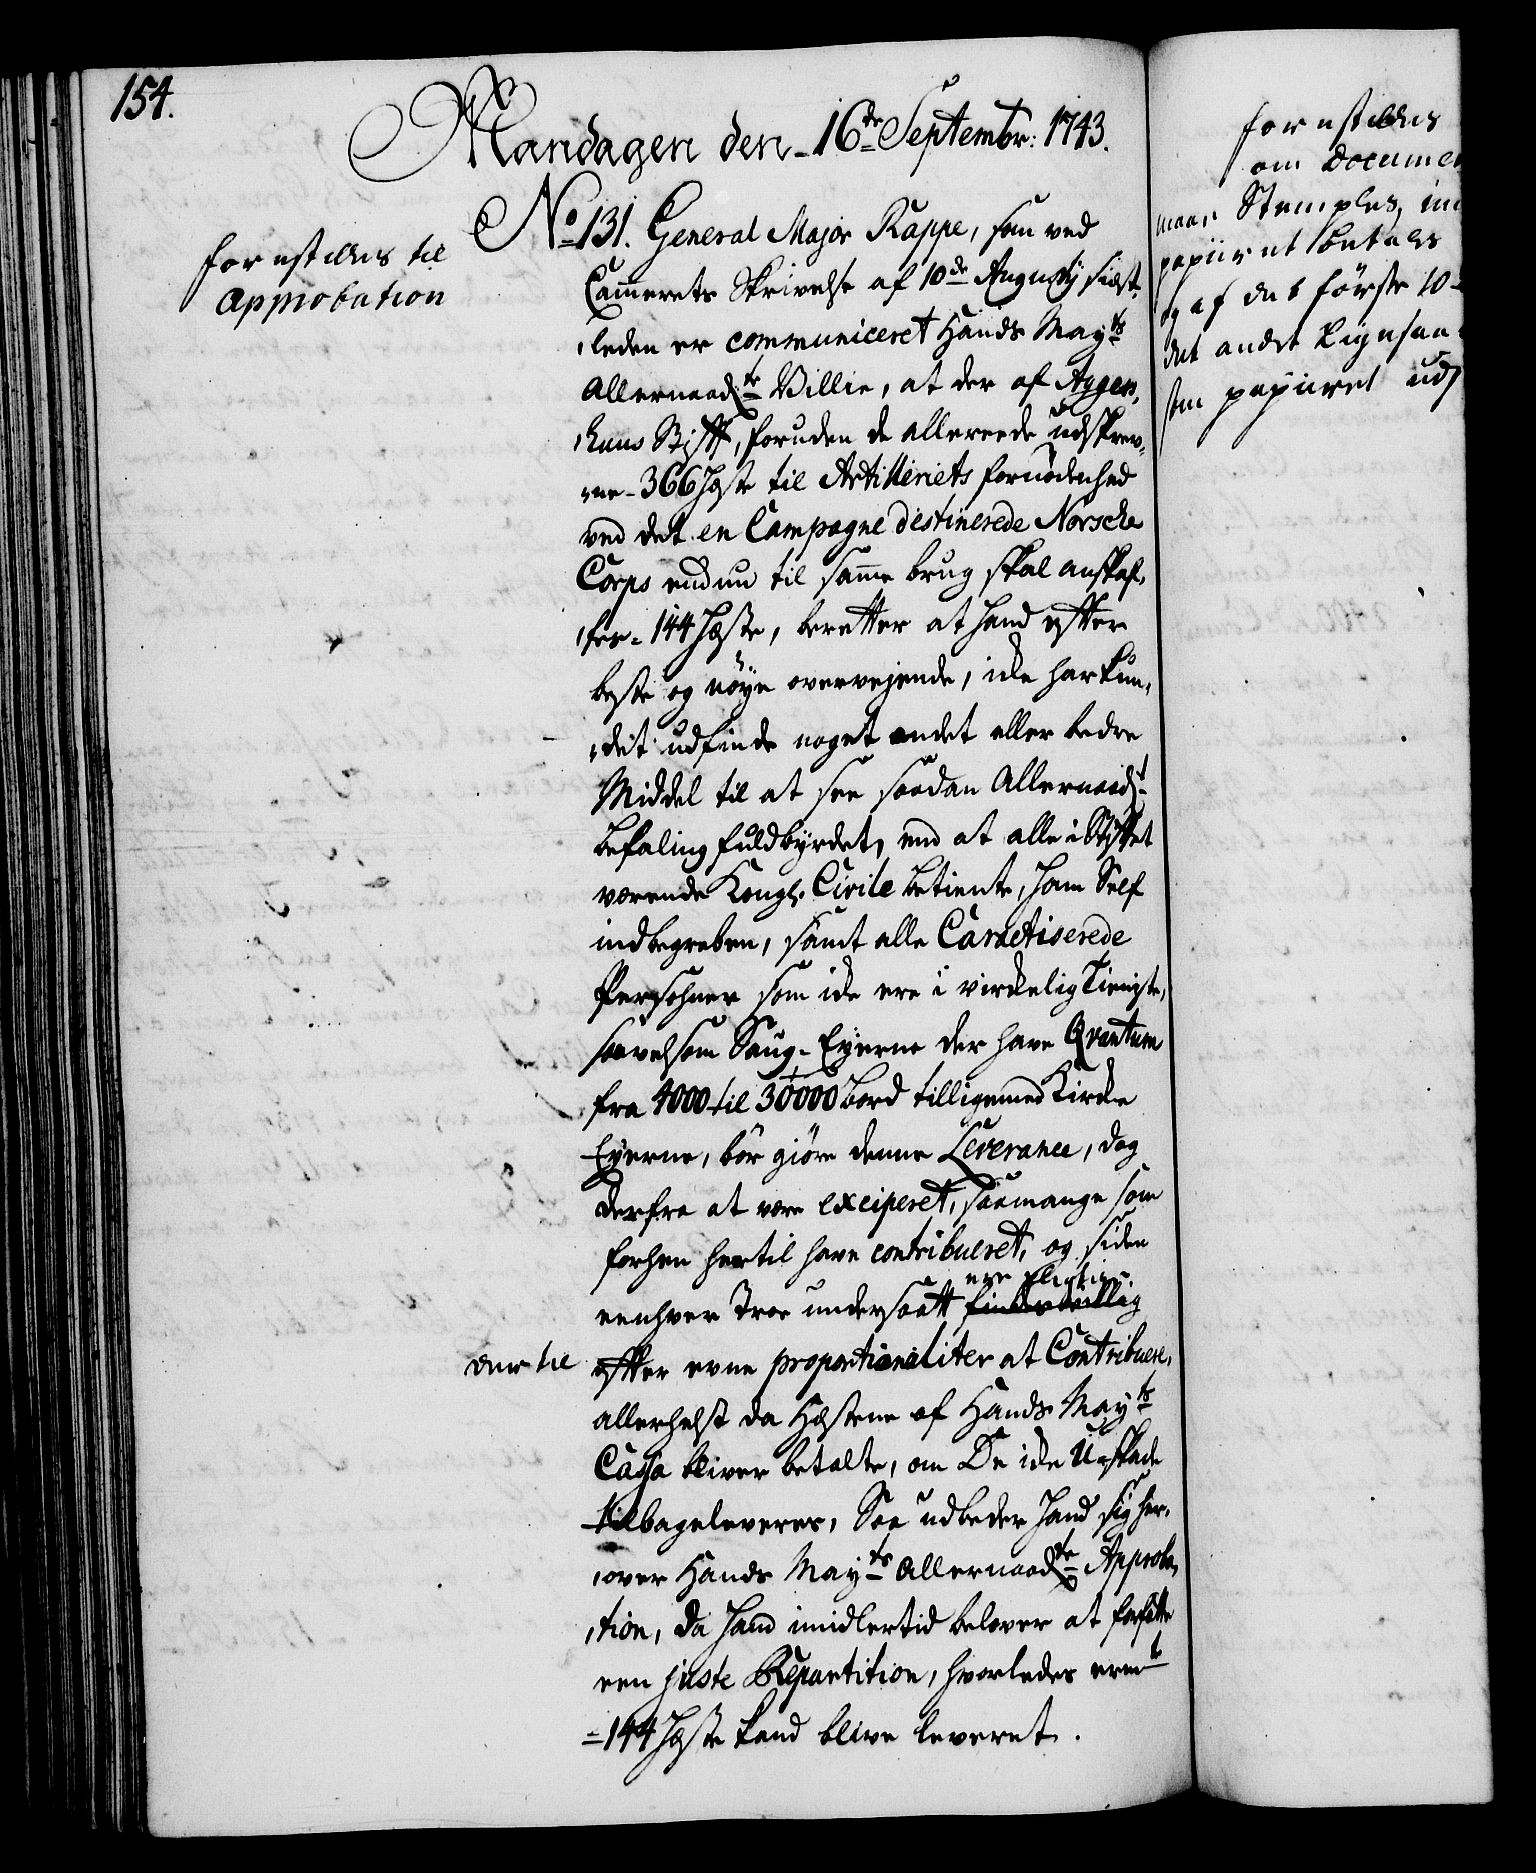 154.
Mandagen den 16de Septembr: 1743.
forestilles til
approbation
No 131. General Major Rappe, som ved
Cammerets Skrivelse af 10de Augusty sidst-
leden er communiceret Hands Mayts
Allernaadste Villie, at der af Aggers-
huus Stift, foruden de allereede udskrev-
ne 366 Heste til Artilleriets fornødenhed
ved det en Campagne destinerede Norsche
Corps endnu til samme brug skal anskaf-
fes 144 Heste, beretter at hand efter
beste og nøye overvejende, icke har kun-
det udfinde noget andet eller bedre
Middel til at see saadan Allernaadst
befaling fuldbyrdet, end at alle i Stiftet
værende Kongl. Civile betiente, ham Self
indbegreben, samt alle Caractiserede
Persohner som icke ere i virckelig Tieniste,
saavelsom Saug-Eyerne der have Qvantum
fra 4000 til 30000 bord tilligemed Kircke
Eyerne, bør giøre denne Leverance, dog
derfra at være exciperet, saamange som
forhen hertil have contribueret, og siden
ere pligtige
eenhver Troe undersaatt findes villig
der til
efter evne proportionaliter at Contribuere,
allerhelst da Hestene af Hands Mayts
Cassa bliver betalte, om De icke Uskade
tilbageleveres, Saa udbeder hand sig her-
over Hands Mayts Allernaadste Approba-
tion, da hand imidlertid belover at forfatte
een juste Repartition, hvorledes ermte
144 Heste kand blive leveret.
forestilles
om Documen
maa Stemples, im
papiiret betales
og af det første 10
det andet Ligesaa
som papiiret ud